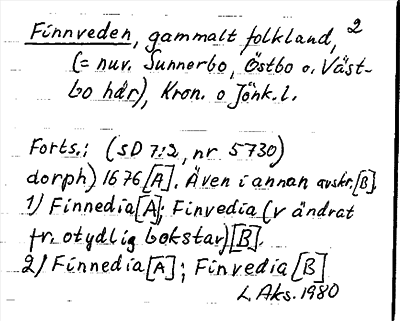 Finnveden, gammalt folkland, 2
(= nuv. Sunnerbo, Östbo o. Väst-
bo här), Kron. o Jönk. l.
Forts.; (SD 7:2, nr 5730)
dorph) 1676 [A]. Även i annan avskr. [B].
1) Finnedia [A]; Finvedia (v ändrat
fr. otydlig bokstav) [B].
2) Finnedia [A]; Finvedia [B]
L. Aks. 1980